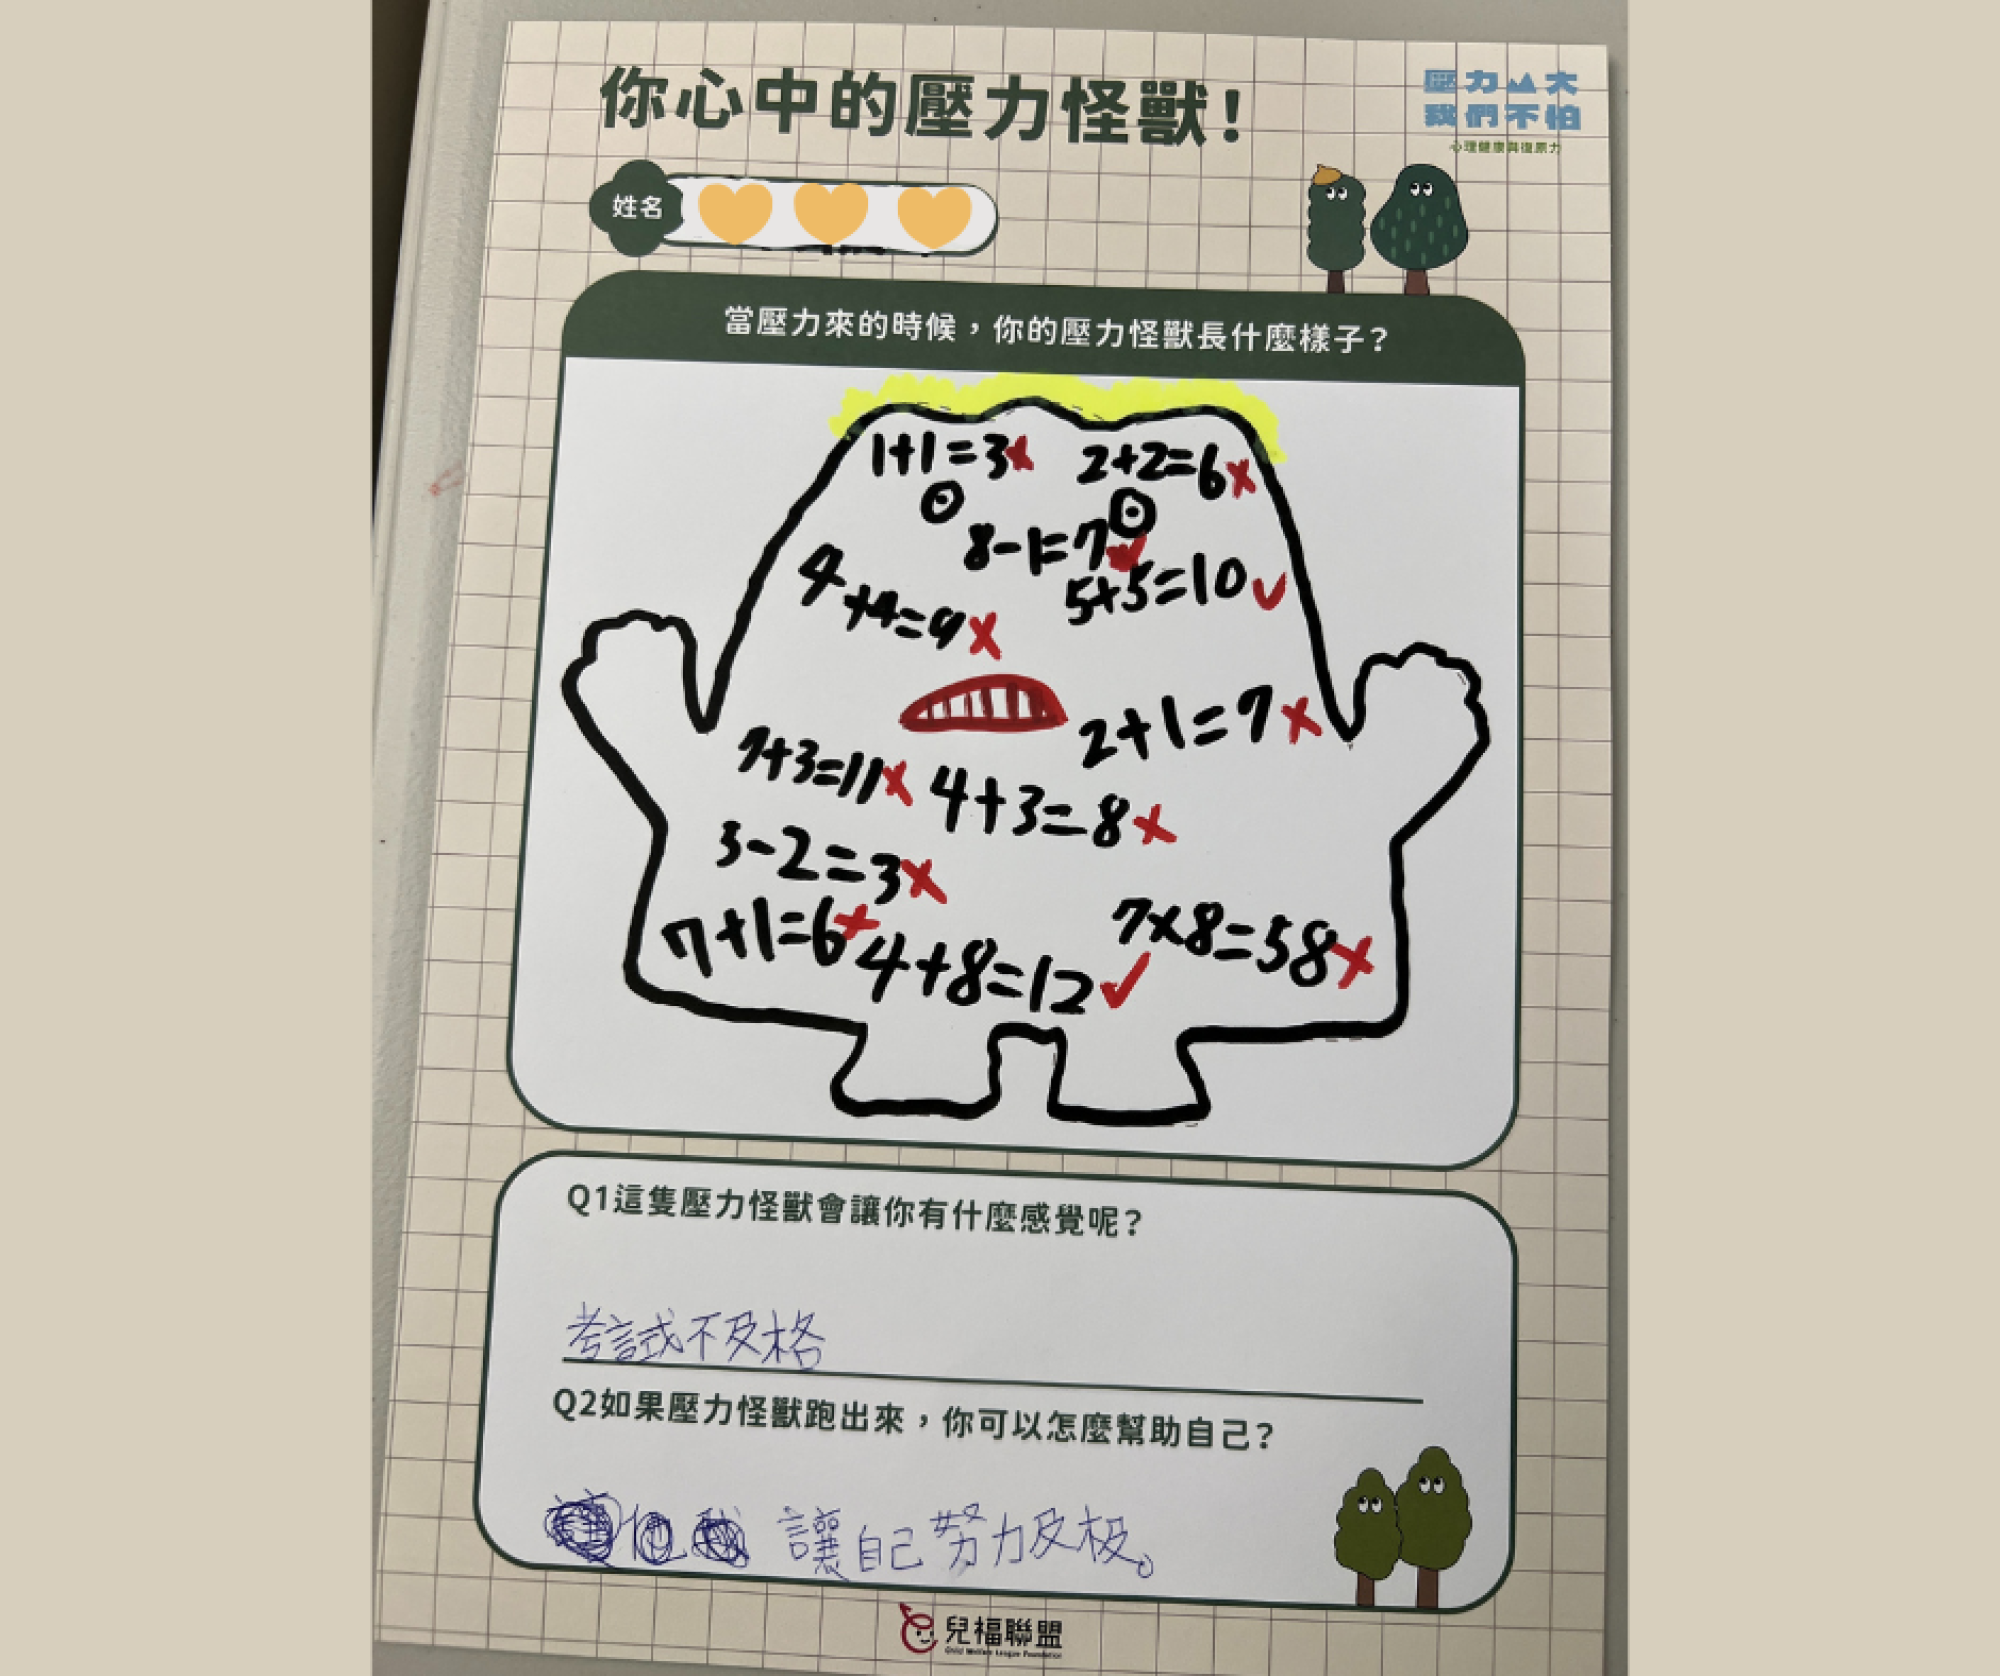 你心中的壓力怪獸!
壓力山大
我們不怕
心理健康與復原力
姓名
當壓力來的時候，你的壓力怪獸長什麼樣子？
1+1=3✗ 2+2=6✗
8-1=7✓
4+4=9✗ 5+5=10✓
2+1=7✗
7+3=11✗ 4+3=8✗
3-2=3✗
7+1=6✗ 4+8=12✓ 7×8=58✗
Q1這隻壓力怪獸會讓你有什麼感覺呢？
考試不及格
Q2如果壓力怪獸跑出來，你可以怎麼幫助自己？
讓自己努力及极。
兒福聯盟
Child Welfare League Foundation